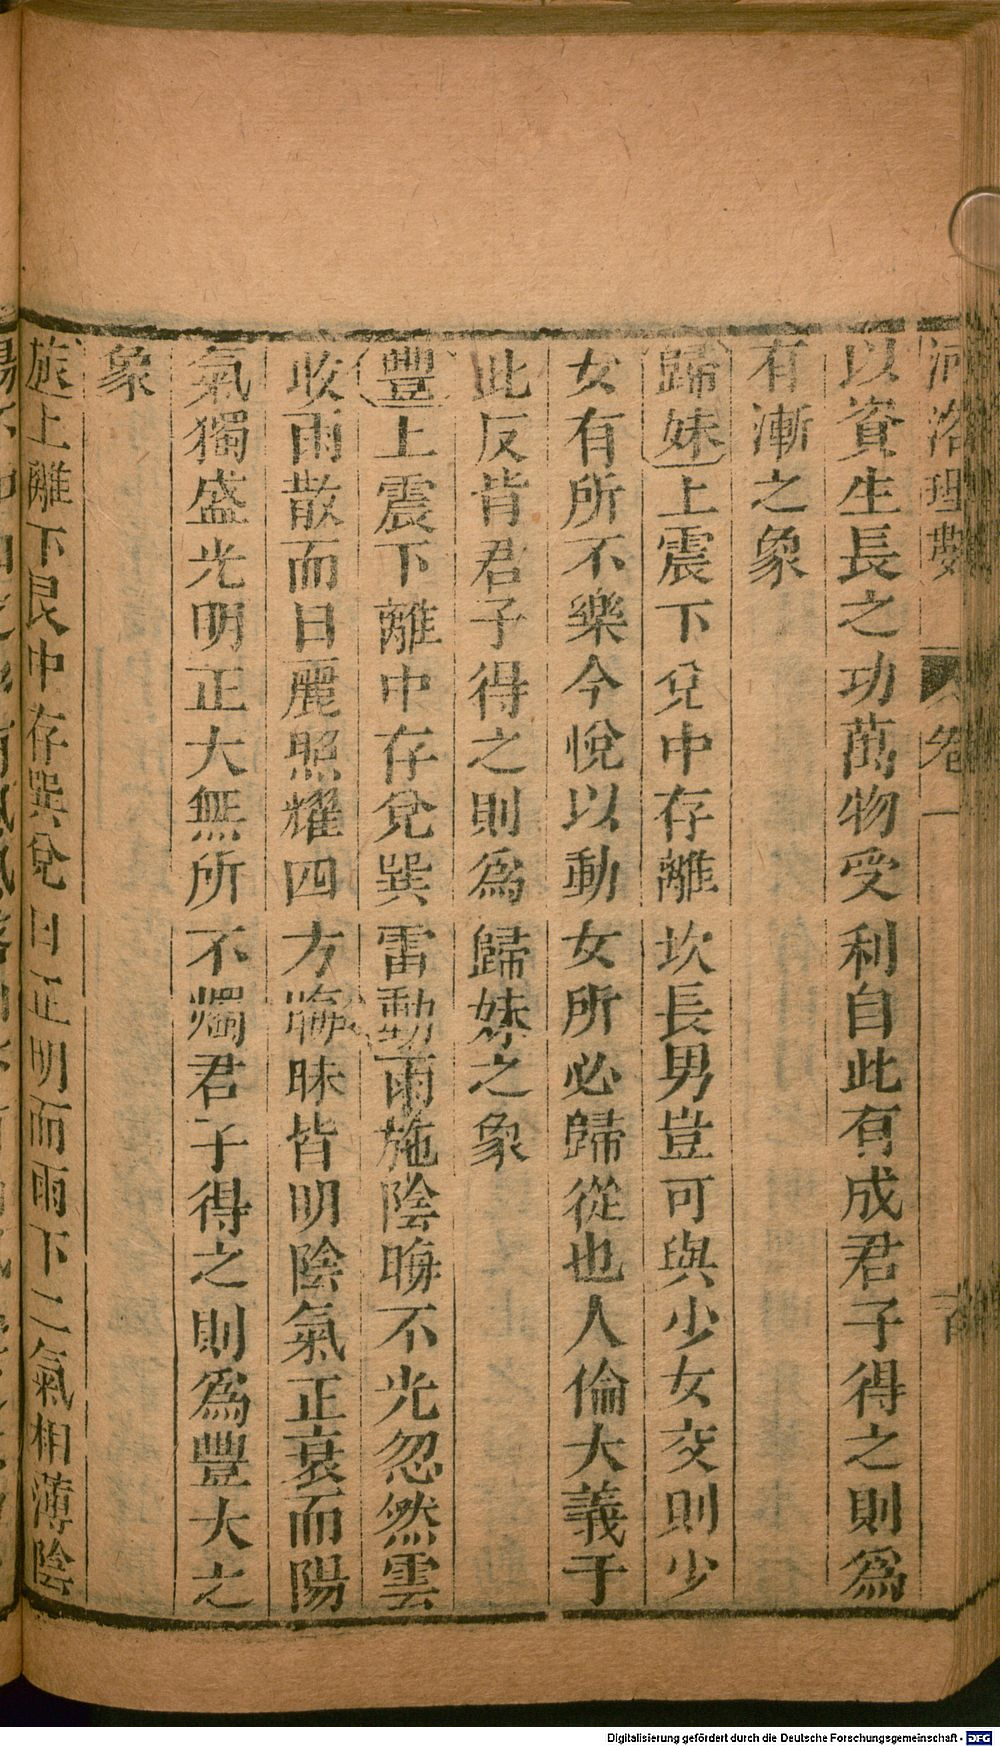 河洛理數 卷一
以資生長之功萬物受利自此有成君子得之則爲
有漸之象
歸妹上震下兌中存離坎長男豈可與少女交則少
女有所不樂今悅以動女所必歸從也人倫大義于
此反背君子得之則爲歸妹之象
豐上震下離中存兌巽雷動雨施陰晦不光忽然雲
收雨散而日麗照耀四方晦昧皆明陰氣正衰而陽
氣獨盛光明正大無所不燭君子得之則爲豐大之
象
旅上離下艮中存巽兌日正明而雨下二氣相薄陰
Digitalisierung gefördert durch die Deutsche Forschungsgemeinschaft - DFG